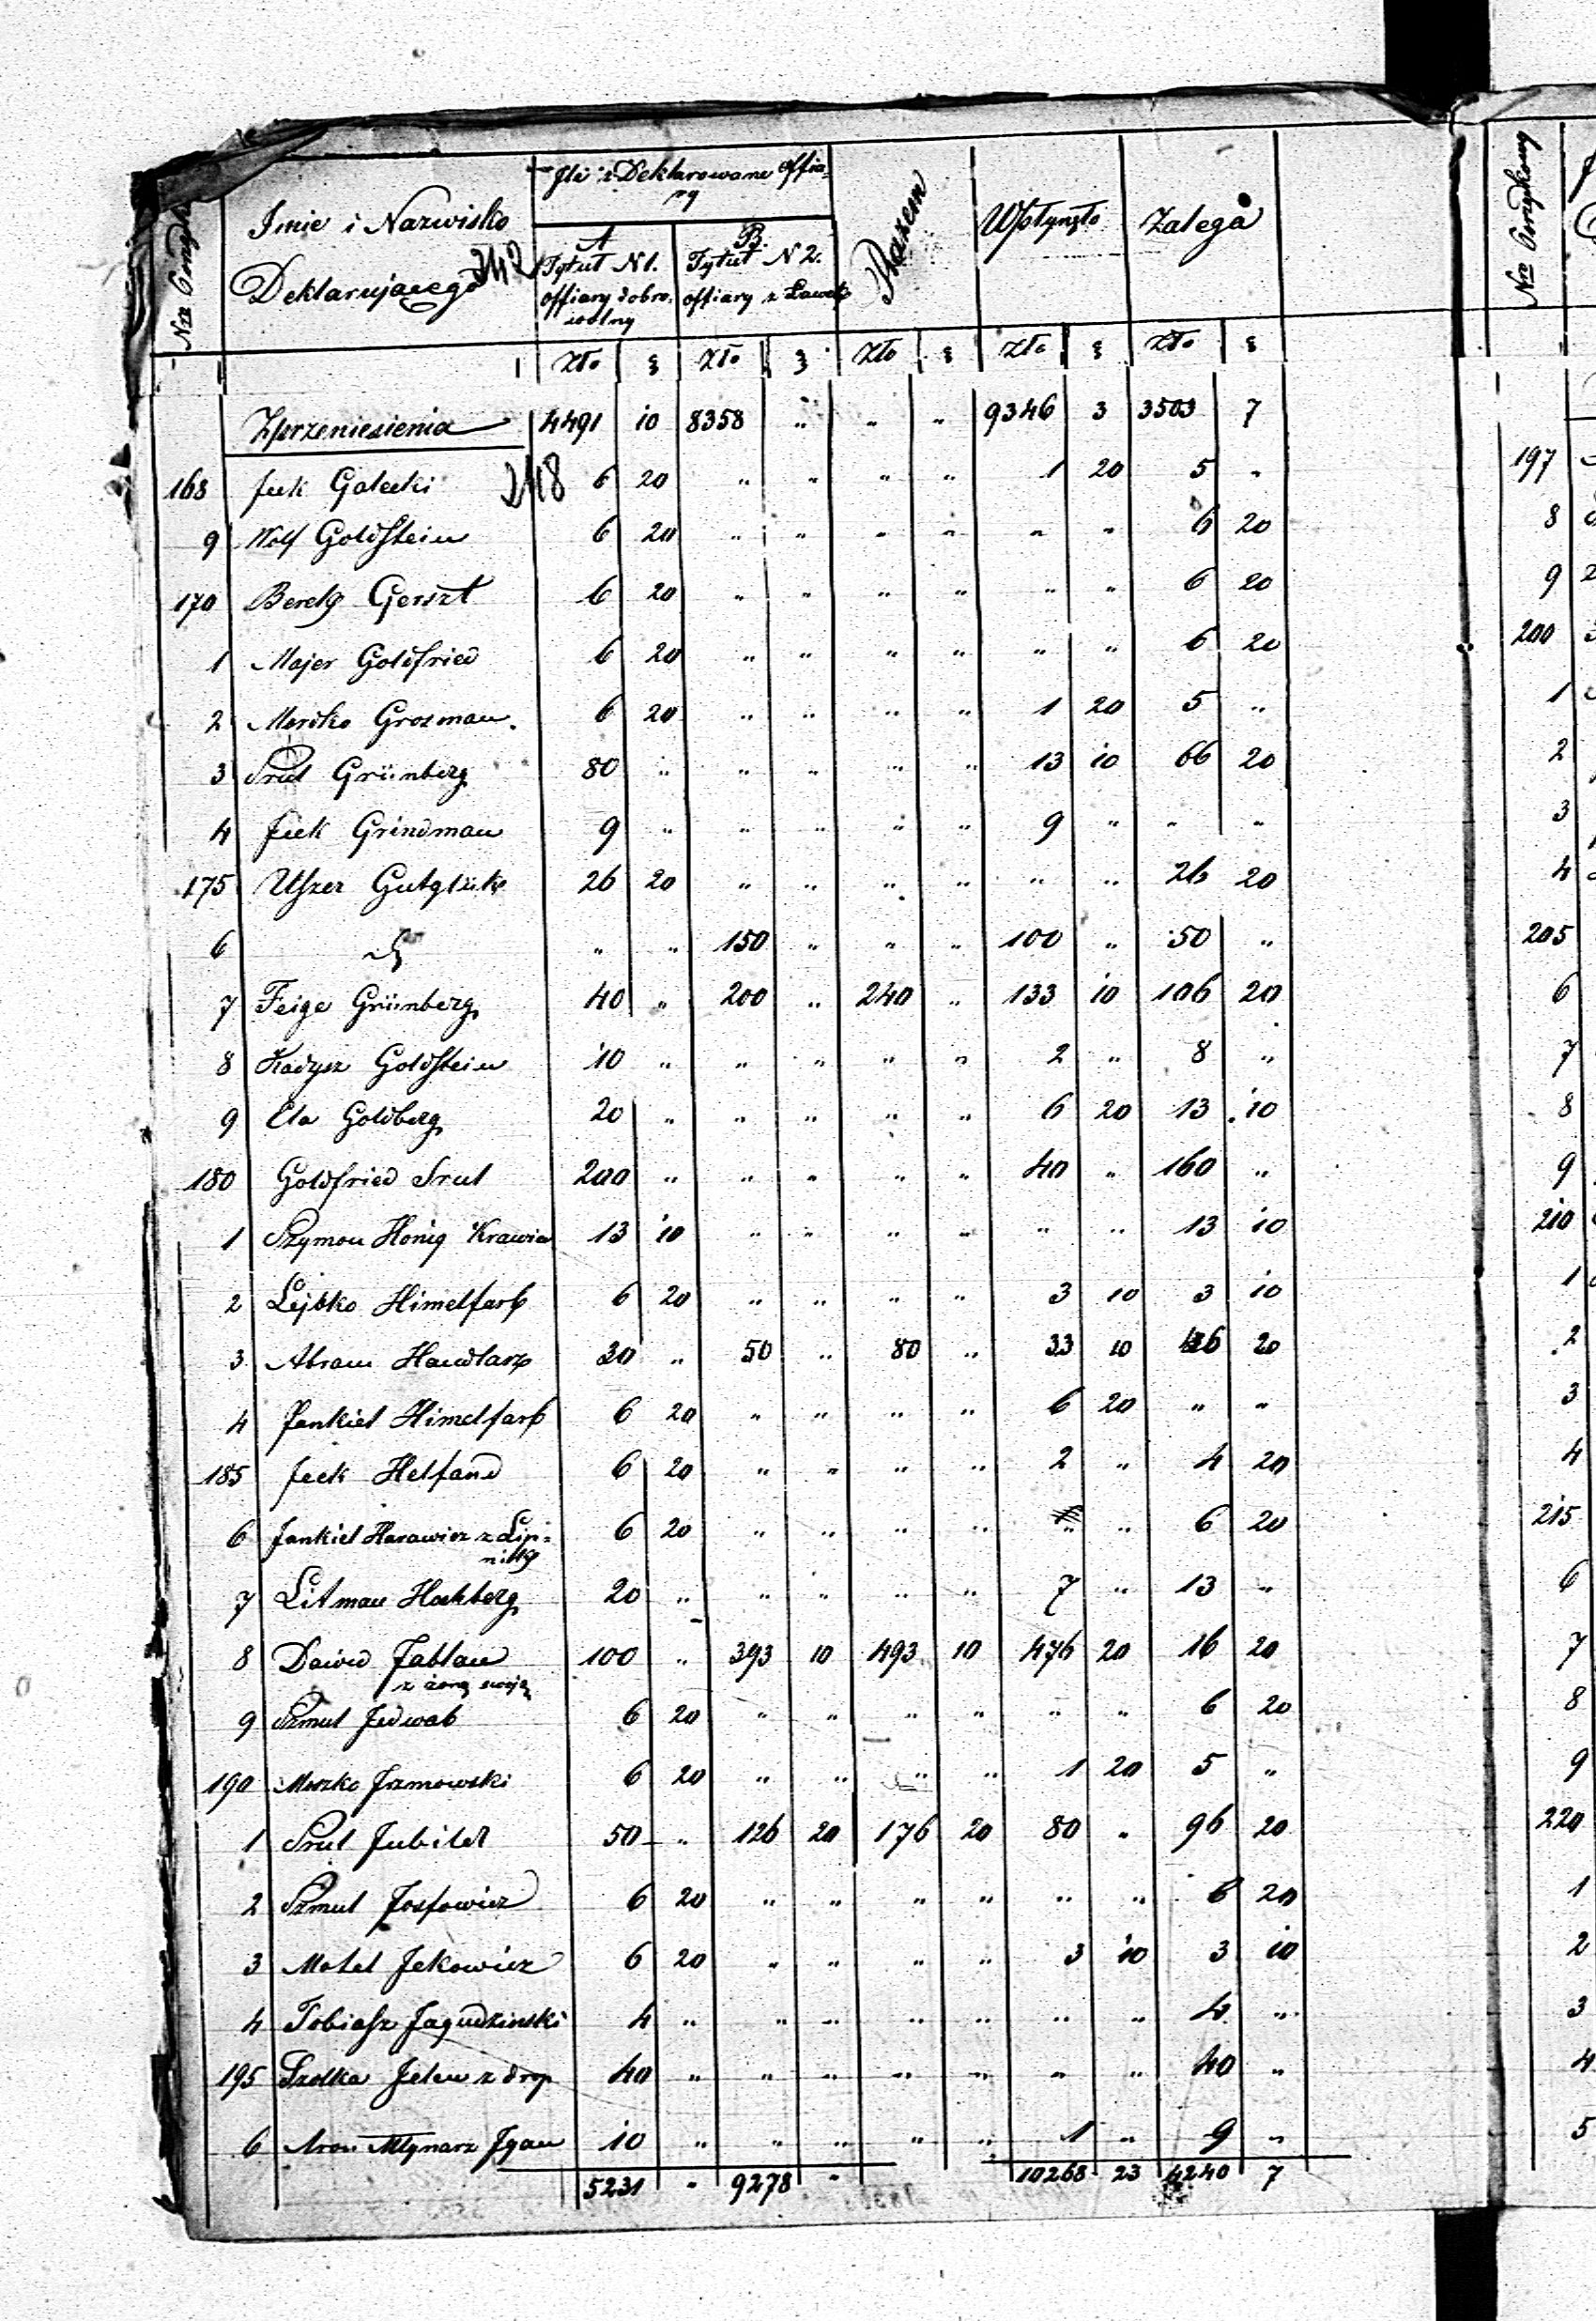 Nro Porządkowy
Imie i Nazwisko
Deklarującego
Ile zDeklarowane offia-
ry
A
Tytuł N 1.
offiary dobro-
wolny
B.
Tytuł N 2.
offiary z Ławek
Razem
Wpłynęło
Zalega
Zło g Zło g Zło g Zło g Zło g
Zprzeniesienia 4491 10 8358 " " " 9346 3 3503 7
168 Jcek Galecki 6 20 " " " " 1 20 5 "
9 Wolf Goldstein 6 20 " " " " " " 6 20
170 Berek Gerszt 6 20 " " " " " " 6 20
1 Majer Goldfried 6 20 " " " " " " 6 20
2 Mordko Grosman. 6 20 " " " " 1 20 5 "
3 Srul Grünberg 80 " " " " " 13 10 66 20
4 Jcek Grindman 9 " " " " " 9 " " "
175 Uszer 26 20 " " " " " " 26 20
6 " " 150 " " " 100 " 50 "
7 Feige Grünberg 40 " 200 " 240 " 133 10 106 20
8 Kadysz Goldstein 10 " " " " " 2 " 8 "
9 Ela Goldberg 20 " " " " " 6 20 13 10
180 Goldfried Srul 200 " " " " " 40 " 160 "
1 Szymon Honig Krawiec 13 10 " " " " " " 13 10
2 Lejbko Himelfarb 6 20 " " " " 3 10 3 10
3 Abram Handlarz 30 " 50 " 80 " 33 10 46 20
4 Jankiel Himelfarb 6 20 " " " " 6 20 " "
185 Jcek Helfand 6 20 " " " " 2 " 4 20
6 Jankiel Harawicz z Lip-
6 20 " " " " " " 6 20
7 Litman Hochberg 20 " " " " " 7 " 13 "
8 Dawid Jablan 100 " 393 10 493 10 476 20 16 20
z żoną swoją
9 Szmul Jedwab 6 20 " " " " " " 6 20
190 Moszko Jzmowski 6 20 " " " " 1 20 5 "
1 Srul Jubiler 50 " 126 20 176 20 80 " 96 20
2 Szmul Josfowicz 6 20 " " " " " " 6 20
3 Motel Jckowicz 6 20 " " " " 3 10 3 10
4 Tobiasz Jagudzinski 4 " " " " " " " 4 "
195 Jelen z drop 40 " " " " " " " 40 "
6 Aron Młynarz Jgan 10 " " " " " 1 " 9 "
5231 " 9278 " 10268 23 4240 7
Nro Porządkowy
197
8
9
200
1
2
3
4
205
6
7
8
9
210
1
2
3
4
215
6
7
8
9
220
1
2
3
4
5